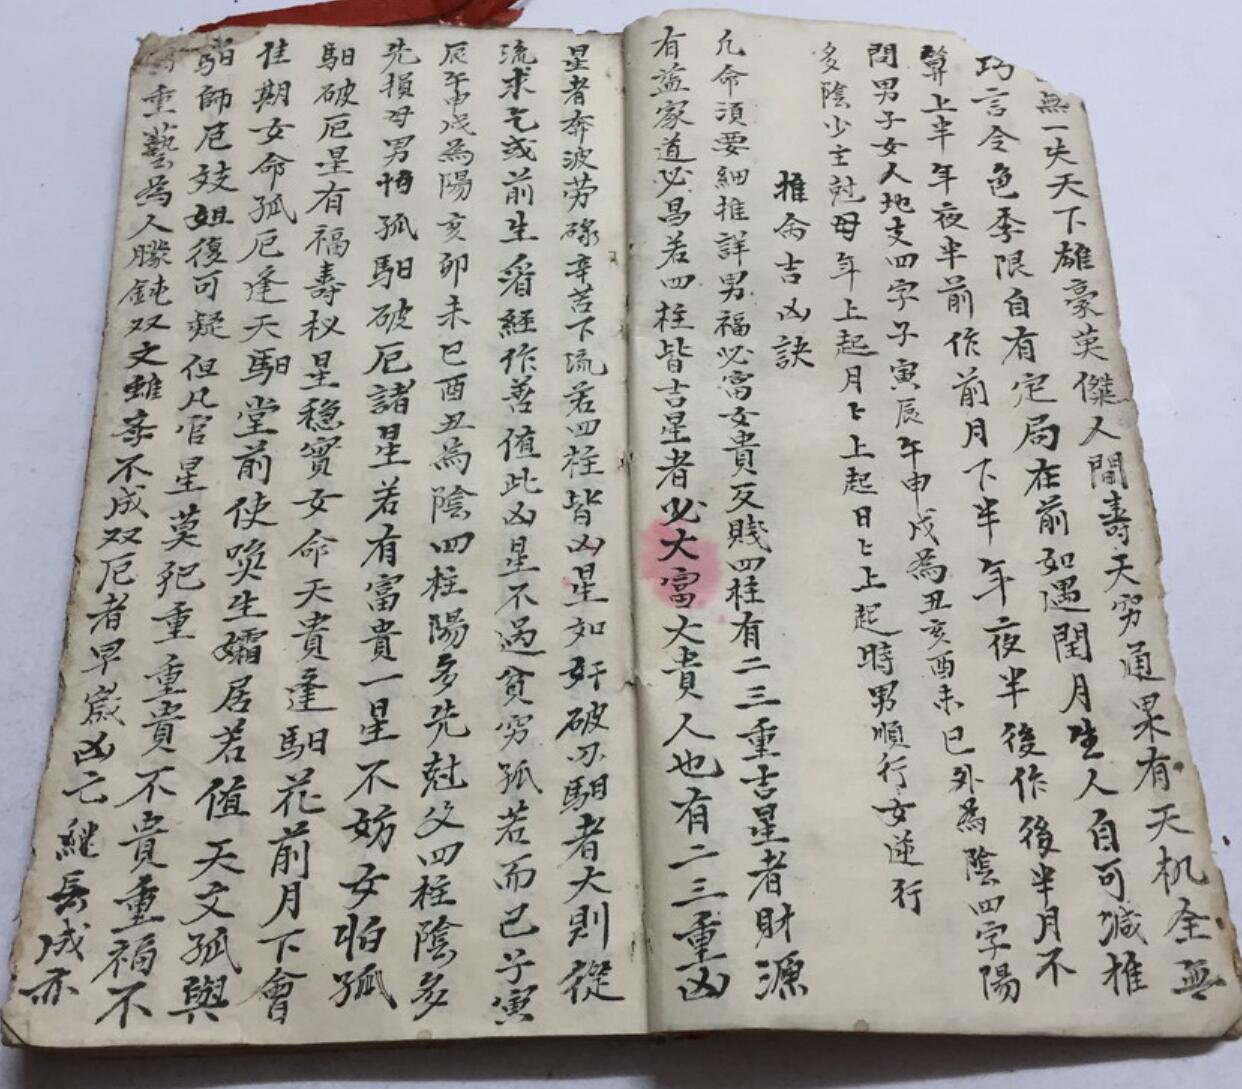 無一失天下雄豪英傑人間壽夭窮通果有天机全無
巧言令色季限自有定局在前如遇閏月生人自可減推
算上半年夜半前作前月下半年夜半後作後半月不
問男子女人地支四字子寅辰午申戌為丑亥酉未巳外為陰四字陽
多陰少主尅母年上起月上起日上起時男順行女逆行
推命吉凶訣
凡命須要細推詳男福必富女貴反賤四柱有二三重吉星者財源
有益家道必昌若四柱皆吉星者必大富大貴人也有二三重凶
星者奔波劳碌辛苦下流若四柱皆凶星如奸破刃馹者大則從
流求乞或前生看經作善值此凶星不過貧窮孤若而已子寅
辰午申戌為陽亥卯未巳酉丑為陰四柱陽多先尅父四柱陰多
先損母男怕孤馹破厄諸星若有富貴一星不妨女怕孤
馹破厄星有福壽权星穩實女命天貴逢馹花前月下會
佳期女命孤厄逢天馹堂前使喚生孀居若值天文孤與
馹師厄妓姐復可疑但凡官星莫犯重重貴不貴重福不
重藝為人朦鈍双文雖不成双厄者早歲凶亡継長成亦